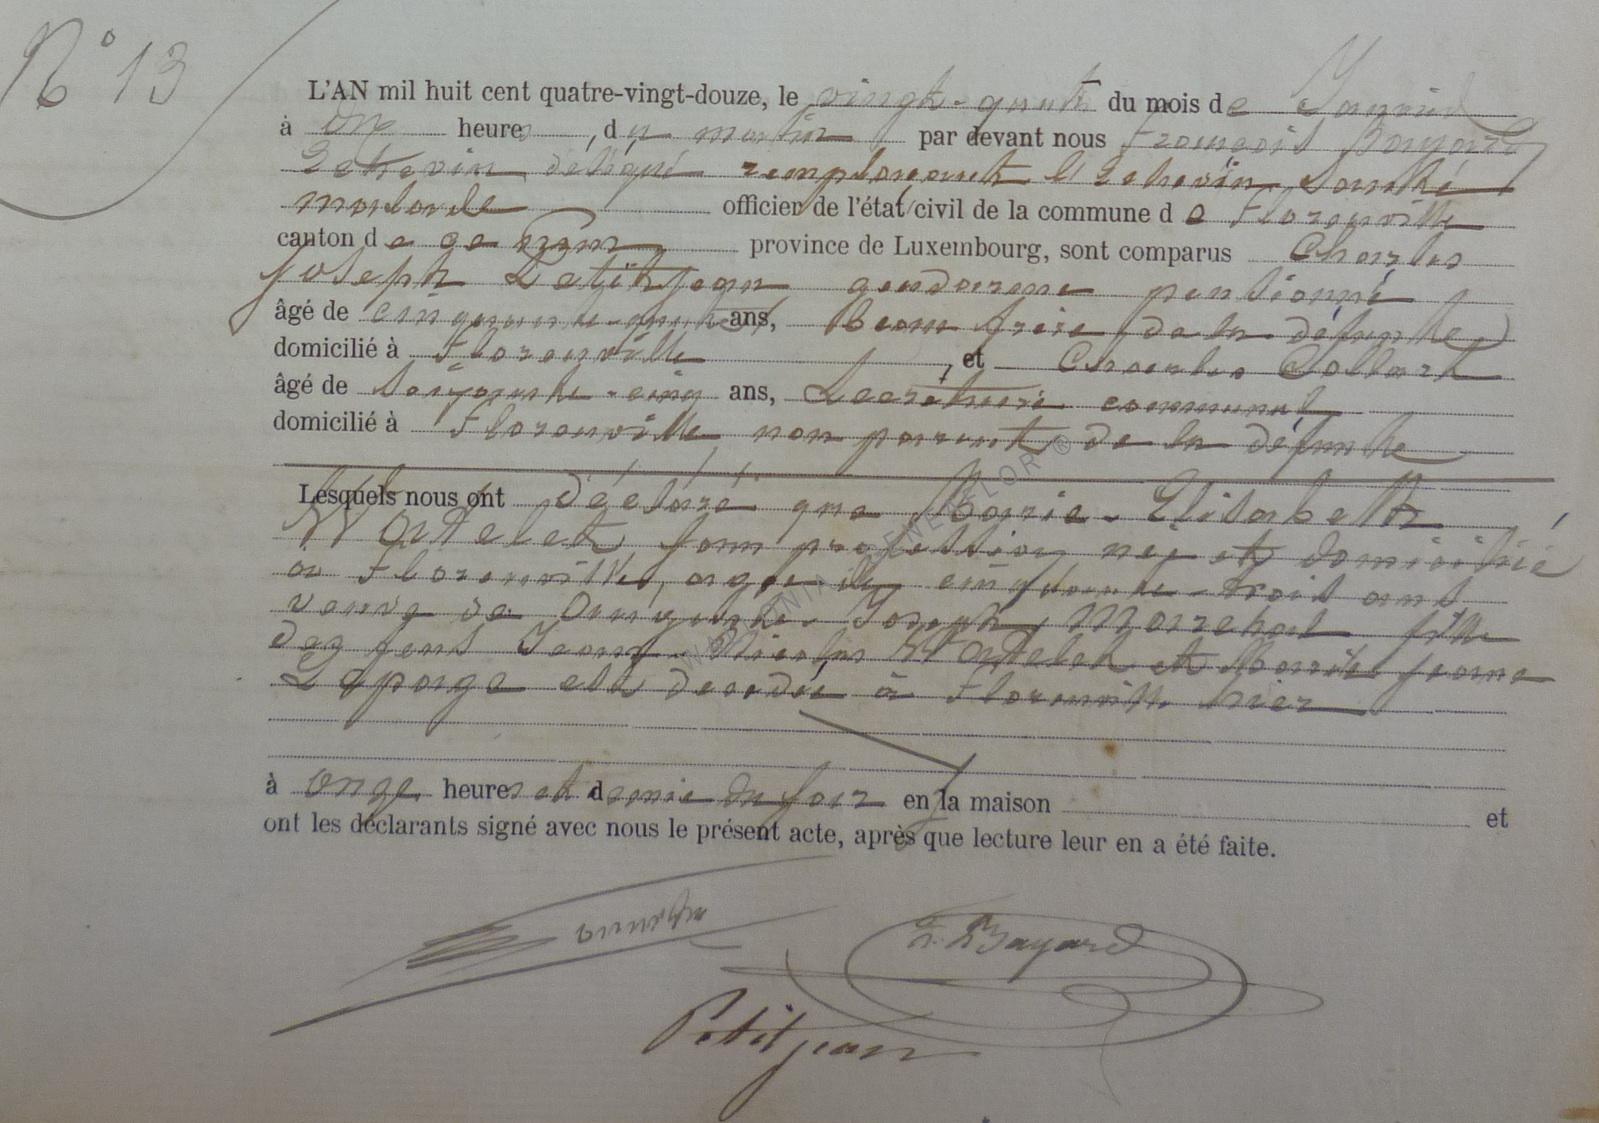 N° 13
L'AN mil huit cent quatre-vingt-douze, le vingt-quatre du mois de Janvier
à onze heures, du matin par devant nous François Bayard
Echevin délégué remplaçant l'Echevin
malade officier de l'état civil de la commune de Florenville
canton de province de Luxembourg, sont comparus Charles
Joseph Petitjean gendarme pensionné
âgé de cinquante-quatre ans, beau frère de la défunte
domicilié à Florenville, et Charles Collard
âgé de soixante-cinq ans, Secrétaire communal
domicilié à Florenville non parent de la défunte
Lesquels nous ont déclaré que Marie-Elisabeth
Watelet, sans profession née et domiciliée
à Florenville, agée de cinquante-trois ans
veuve de Auguste-Joseph Marechal fille
des feus Jean-Nicolas Watelet et Marie Jeanne
Lepage est decédée à Florenville hier
à onze heures et demie du soir en sa maison et
ont les déclarants signé avec nous le présent acte, après que lecture leur en a été faite.
F. Bayard
Petitjean